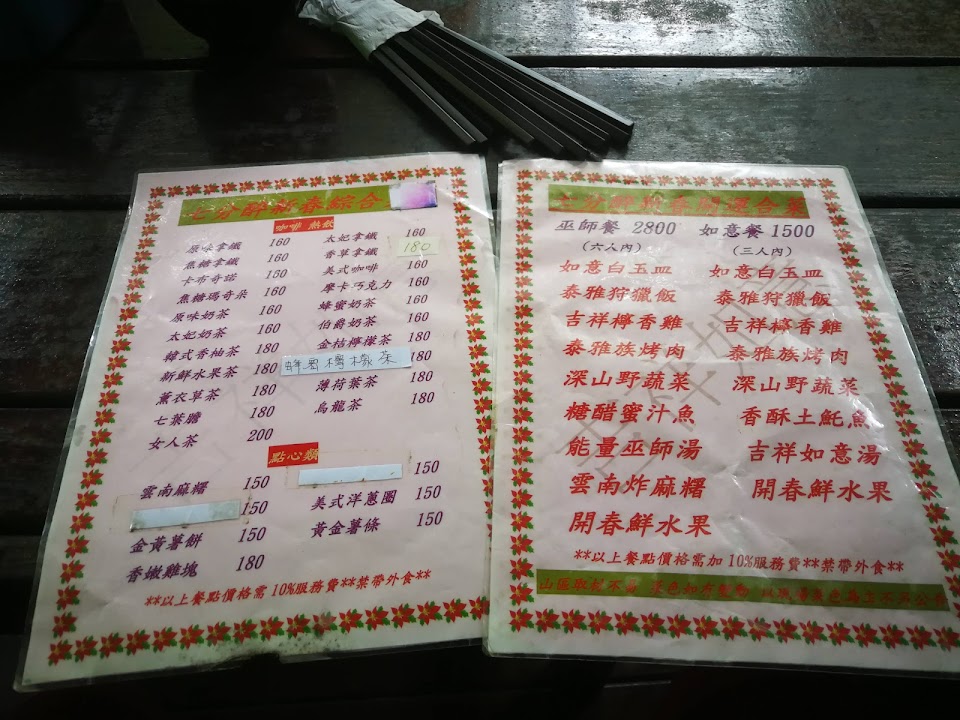 七分醉新春綜合
咖啡 熱飲
原味拿鐵 160 太妃拿鐵 160
焦糖拿鐵 160 香草拿鐵 180
卡布奇諾 160 美式咖啡 160
焦糖瑪奇朵 160 摩卡巧克力 160
原味奶茶 160 蜂蜜奶茶 160
太妃奶茶 160 伯爵奶茶 160
韓式香柚茶 180 金桔檸檬茶 180
新鮮水果茶 180 180
薰衣草茶 180 薄荷葉茶 180
七葉膽 180 烏龍茶 180
女人茶 200
點心類
雲南麻糬 150 150
150 美式洋蔥圈 150
金黃薯餅 150 黃金薯條 150
香嫩雞塊 180
**以上餐點價格需 10%服務費**禁帶外食**
七分醉新春開運合菜
巫師餐 2800 如意餐 1500
(六人內) (三人內)
如意白玉皿 如意白玉皿
泰雅狩獵飯 泰雅狩獵飯
吉祥檸香雞 吉祥檸香雞
泰雅族烤肉 泰雅族烤肉
深山野蔬菜 深山野蔬菜
糖醋蜜汁魚 香酥土魠魚
能量巫師湯 吉祥如意湯
雲南炸麻糬 開春鮮水果
開春鮮水果
**以上餐點價格需加 10%服務費**禁帶外食**
山區取材不易 菜色如有更動 以現場